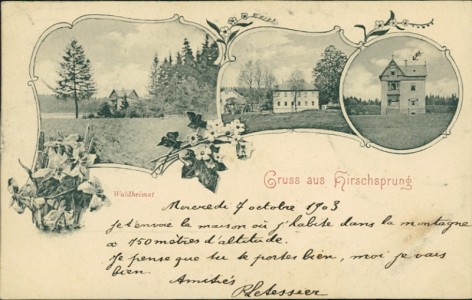 Waldheimat
Gruss aus Hirschsprung
Mercredi 7 octobre 1903
je t'envoie la maison où j'habite dans la montagne
à 750 mètres d'altitude.
Je pense que tu te portes bien, moi je vais
bien.
Amitiés
R Letessier